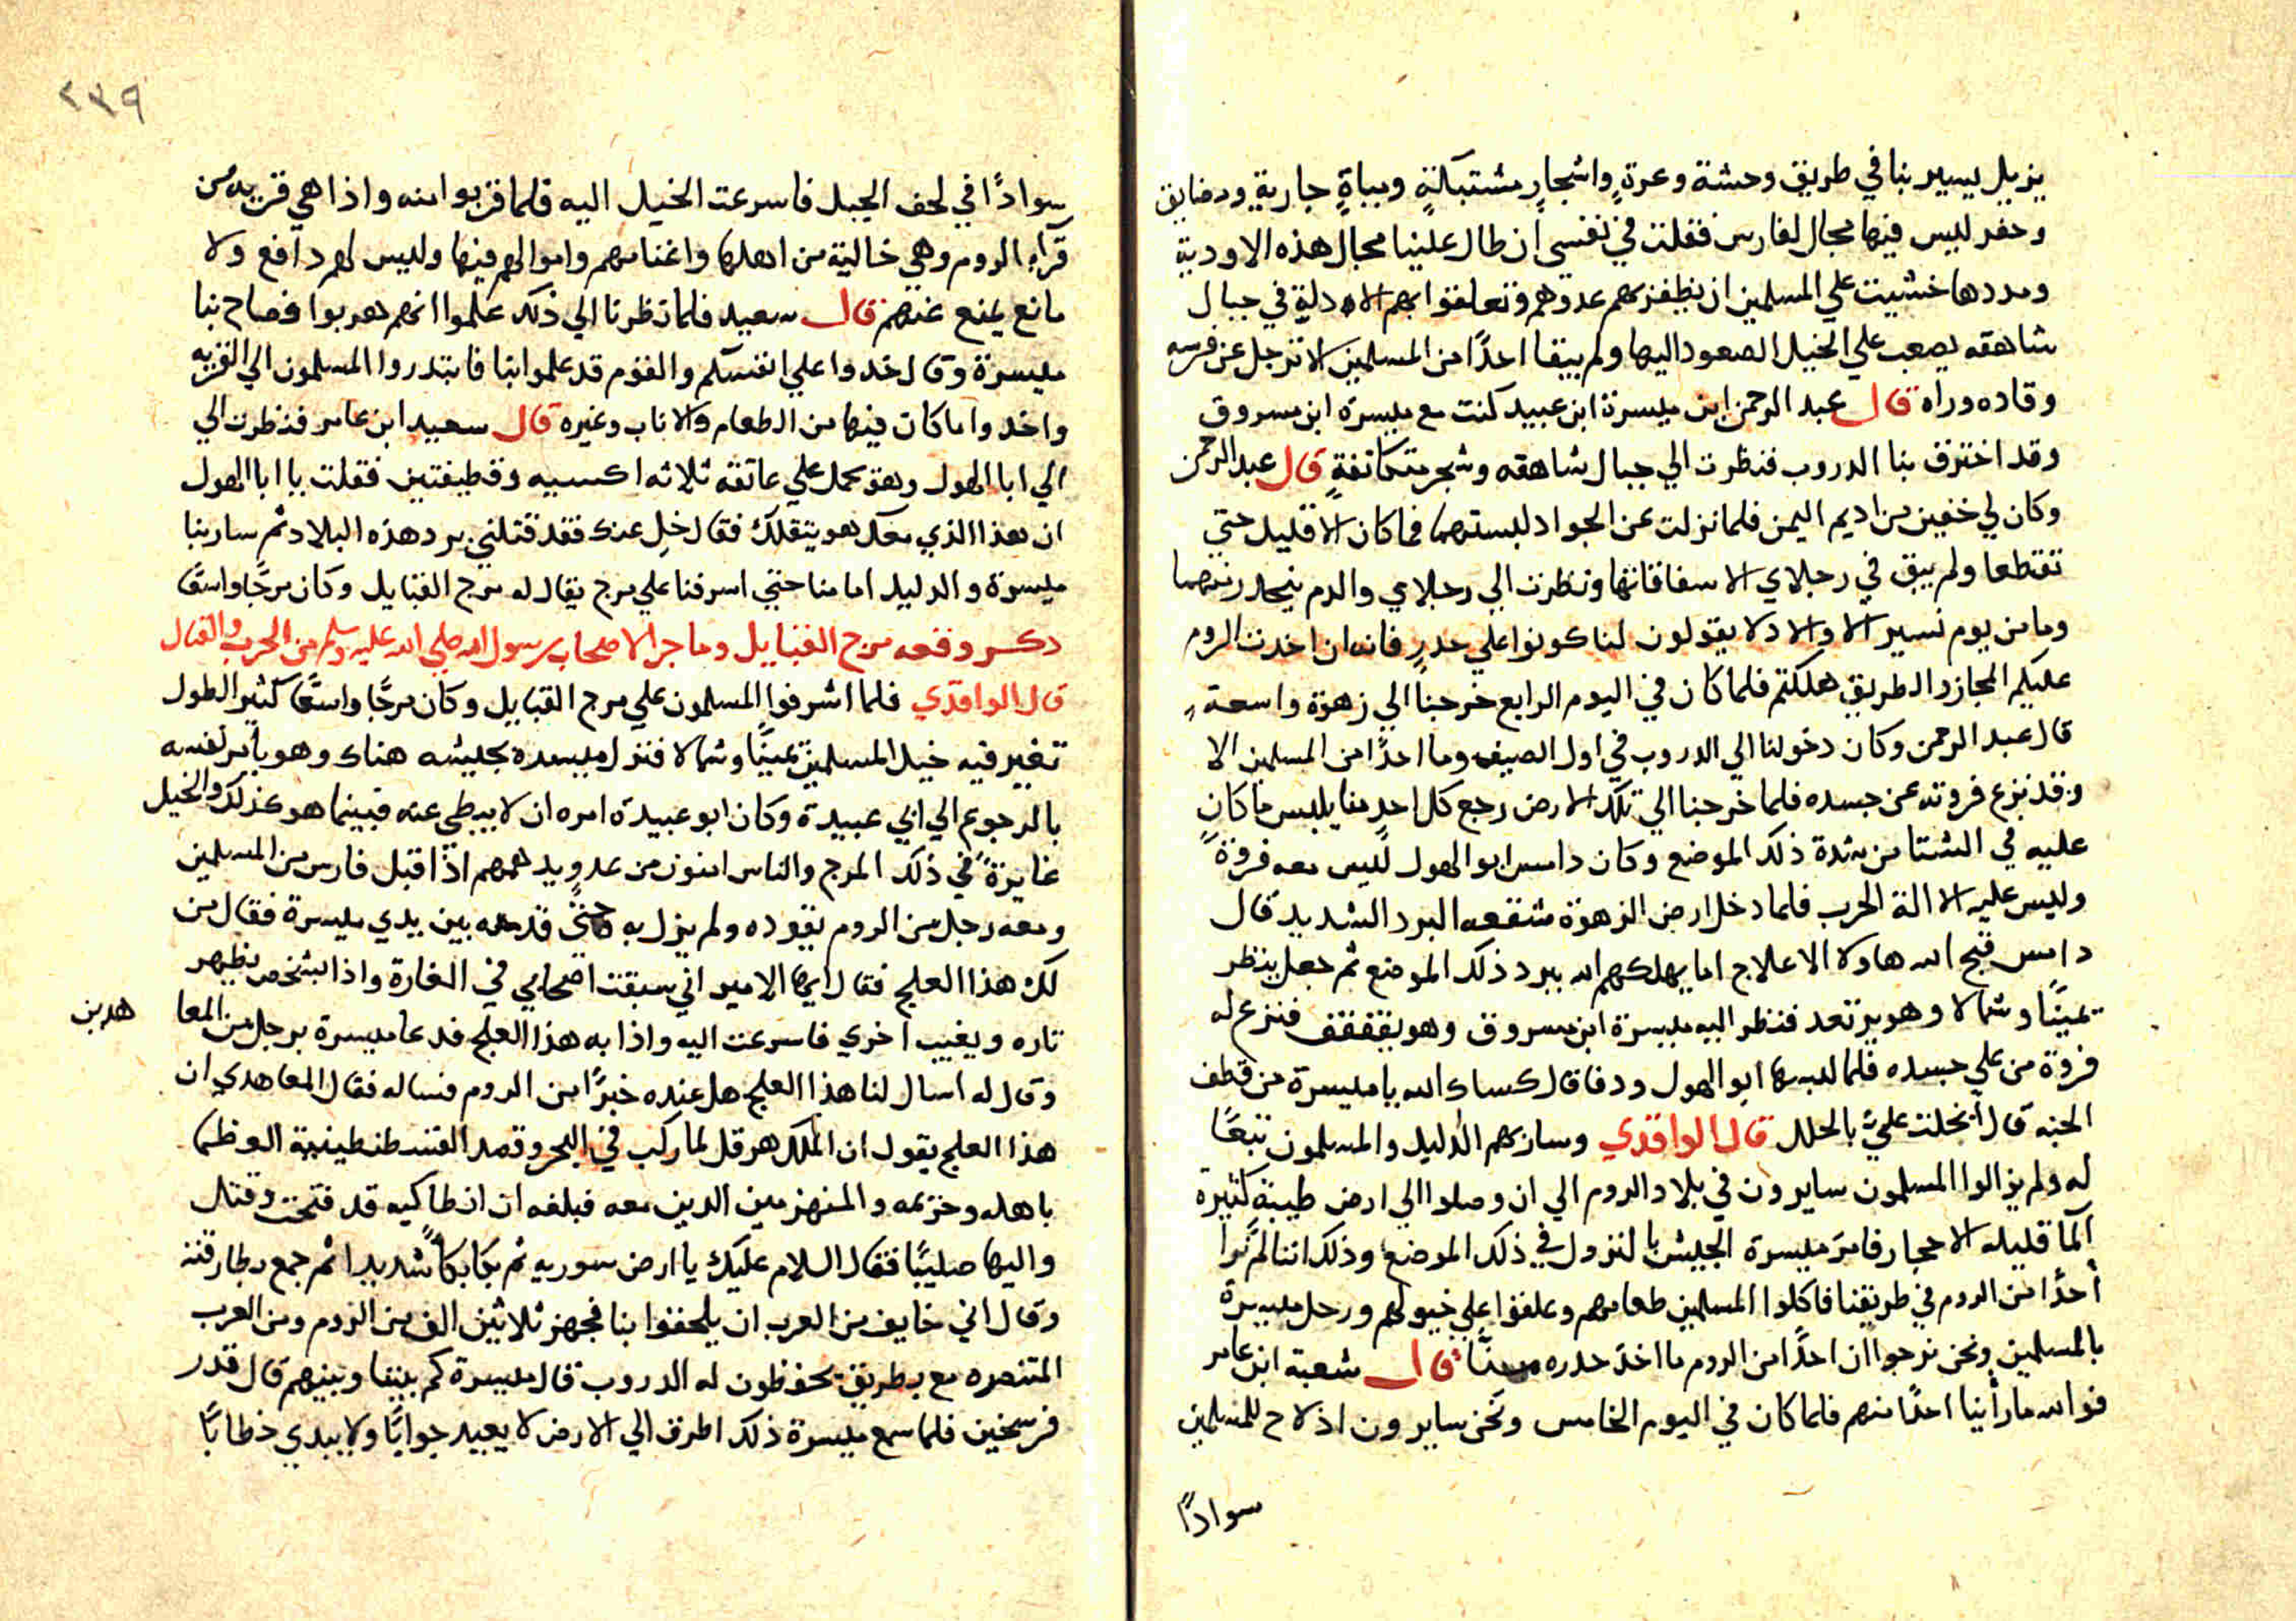 يزيل يسير بنا في طريق وحشة وعرةٍ واشجارٍ مشتبكةٍ ومياةٍ جاريةٍ ومضايق
وحفر ليس فيها مجال لفارس فقلت في نفسي ان طال علينا مجال هذه الاودية
ومددها خشيت علي المسلمين ان يظفر بهم عدوهم وتعلقوا بهم الادلة في جبال
شاهقه يصعب علي الخيل الصعود اليها ولم يبقا احدًا من المسلمين الا ترجل عن فرسه
وقاده وراه قال عبد الرحمن ابن ميسرة ابن عبيد كنت مع ميسرة ابن مسروق
وقد اخترق بنا الدروب فنظرت الي جبال شاهقه وشجر متكاتفةٍ قال عبد الرحمن
وكان لي خفين من اديم اليمن فلما نزلت عن الجواد لبستهما فما كان الا قليل حتي
تقطعا ولم يبق في رجلاي الا سفاقاتها ونظرت الي رجلاي والدم ينحدر منهما
وما من يوم نسير الا والادلا يقولون لنا كونوا علي حدرٍ فانه ان اخدت الروم
عليكم المجاز والطريق هلكتم فلما كان في اليوم الرابع خرجنا الي زهوة واسعة
قال عبد الرحمن وكان دخولنا الي الدروب في اول الصيف وما احدًا من المسلمين الا
وقد نزع فروته عن جسده فلما خرجنا الي تلك الارض رجع كل احدٍ منا يلبس ما كان
عليه في الشتا من شدة ذلك الموضع وكان دامس ابو الهول ليس معه فروةً
وليس عليه الا الة الحرب فلما دخل ارض الزهوة شقعه البرد الشديد قال
دامس قبح الله هاولا الاعلاج اما يهلكهم الله ببرد ذلك الموضع ثم جعل ينظر
يمينًا وشمالا وهو يرتعد فنظر اليه ميسرة ابن مسروق وهو يقفقف فنزع له
فروة من علي جسده فلما لبسها ابو الهول ودفا قال كساك الله يا ميسرة من قطف
الجنه قال انجلت عليَّ بالحلل قال الواقدي وسار بهم الدليل والمسلمون تبعًا
له ولم يزالوا المسلمون سايرون في بلاد الروم الي ان وصلوا الي ارض طيبة كثيرة
الما قليله الاحجار فامر ميسرة الجيش بالنزول في ذلك الموضع وذلك اننا لم نرا
احدًا من الروم في طريقنا فاكلوا المسلمين طعامهم وعلفوا علي خيولهم ورحل ميسرة
بالمسلمين ونحن نرجوا ان احدًا من الروم ما اخذ حدره منَّا قال شعبة ابن عامر
فوالله ما رأينا احدًا منهم فلما كان في اليوم الخامس ونحن سايرون اذ لاح للمسلمين
سوادًا
٢٣٩
سوادًا في لحف الجبل فاسرعت الخيل اليه فلما قربوا منه واذا هي قريه من
قراء الروم وهي خالية من اهلها واغنامهم واموالهم فيها وليس لهم دافع ولا
مانع يمنع عنهم قال سعيد فلما نظرنا الي ذلك علموا انهم هربوا فصاح بنا
ميسرة وقال خدوا علي انفسكم والقوم قد علموا بنا فابتدروا المسلمون الي القريه
واخدوا ما كان فيها من الطعام والاناب وغيره قال سعيد ابن عامر فنظرت الي
الي ابا الهول وهو يحمل علي عاتقه ثلاثه اكسيه وقطيفتين فقلت يا ابا الهول
ان هذا الذي معك هو يتقلك فقال خل عنك فقد قتلني برد هذه البلاد ثم سار بنا
ميسرة والدليل امامنا حتي اسرفنا علي مرج يقال له مرج القبايل وكان مرجًا واسعًا
دكر وقعه مرج القبايل وما جرا لاصحاب رسول الله صلي الله عليه وسلم من الحرب والقتال
قال الواقدي فلما اشرفوا المسلمون علي مرج القبايل وكان مرجًا واسعًا كثير الطول
تغير فيه خيل المسلمين يمينًا وشمالا فنزل ميسره بجيشه هناك وهو يأمر نفسه
بالرجوع الي ابي عبيدة وكان ابو عبيدة امره ان لا يبطي عنه فبينما هو عذلك والخيل
غايرةً في ذلك المرج والناس امنون من عدو يدهمهم اذ اقبل فارس من المسلمين
ومعه رجل من الروم يقوده ولم يزل به حتي قدمه بين يدي ميسرة فقال من
لك هذا العلج فقال ايها الامير اني سبقت اصحابي في الغارة واذا بشخص يظهر
تاره ويغيب اخري فاسرعت اليه واذا به هذا العلج فدعا ميسرة برجل من المعا
هدين
وقال له اسال لنا هذا العلج هل عنده خبرًا من الروم فساله فقال المعاهدي ان
هذا العلج يقول ان الملك هرقل لما ركب في البحر وقصد القسطنطينية العظما
باهله وحزيمه والمنهزمين الدين معه فبلغه ان انطاكيه قد فتحت وقتل
واليها صليبًا فقال السلام عليك يا ارض سوريه ثم بكا بكاً شديدا ثم جمع بطارقته
وقال اني خايف من العرب ان يلحقوا بنا فجهز ثلاثين الف من الروم ومن العرب
المتنصره مع بطريق يحفظون له الدروب قال ميسرة كم بيننا وبينهم قال قدر
فرسخين فلما سمع ميسرة ذلك اطرق الي الارض لا يعيد جوابًا ولا يبدي خطابًا